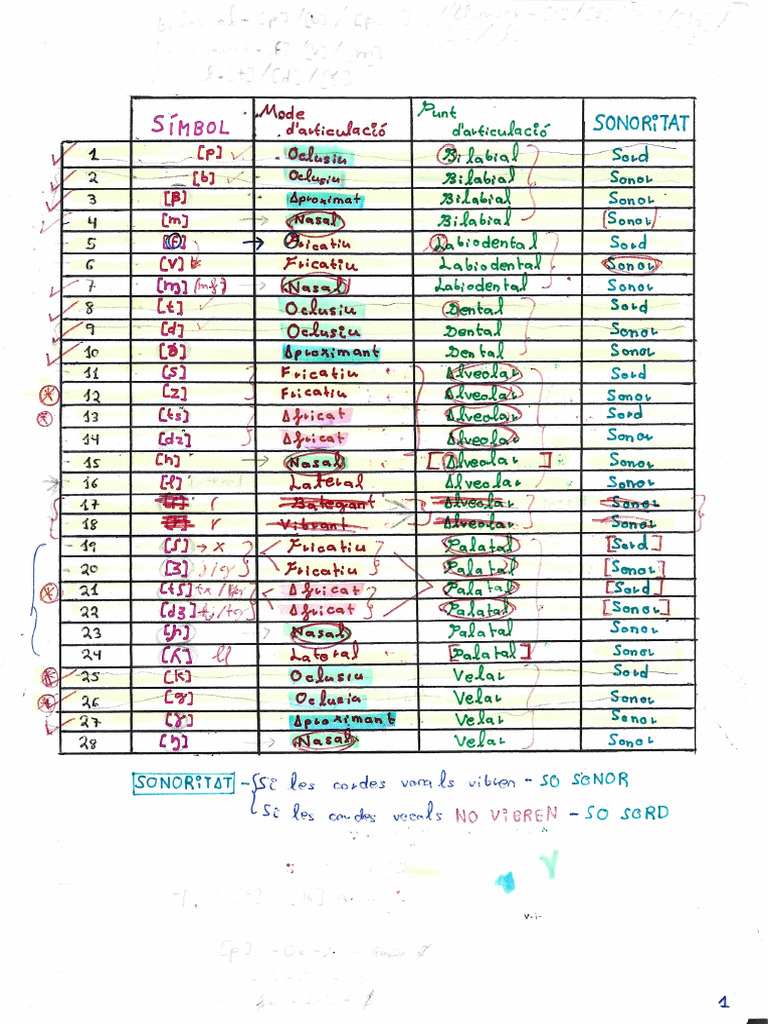 SÍMBOL Mode d'articulació Punt d'articulació SONORITAT
1 [p] Oclusiu Bilabial Sord
2 [b] Oclusiu Bilabial Sonor
3 [β] Aproximat Bilabial Sonor
4 [m] Nasal Bilabial [Sonor]
5 [f] Fricatiu Labiodental Sord
6 [v] Fricatiu Labiodental Sonor
7 [ɱ] (mf) Nasal Labiodental Sonor
8 [t] Oclusiu Dental Sord
9 [d] Oclusiu Dental Sonor
10 [ð] Aproximant Dental Sonor
11 [s] Fricatiu Alveolar Sord
12 [z] Fricatiu Alveolar Sonor
13 [ts] Africat Alveolar Sord
14 [dz] Africat Alveolar Sonor
15 [n] Nasal [Alveolar] Sonor
16 [l] Lateral Alveolar Sonor
17 r Bategant Alveolar Sonor
18 r Vibrant Alveolar Sonor
19 [ʃ] → x Fricatiu Palatal [Sord]
20 [ʒ] j/g Fricatiu Palatal [Sonor]
21 [tʃ] tx / Africat Palatal [Sord]
22 [dʒ] tj/tg Africat Palatal [Sonor]
23 [ɲ] Nasal Palatal Sonor
24 [ʎ] ll Lateral [Palatal] Sonor
25 [k] Oclusiu Velar Sord
26 [g] Oclusiu Velar Sonor
27 [ɣ] Aproximant Velar Sonor
28 [ŋ] Nasal Velar Sonor
SONORITAT - Si les cordes vocals vibren - SO SONOR
Si les cordes vocals NO VIBREN - SO SORD
1